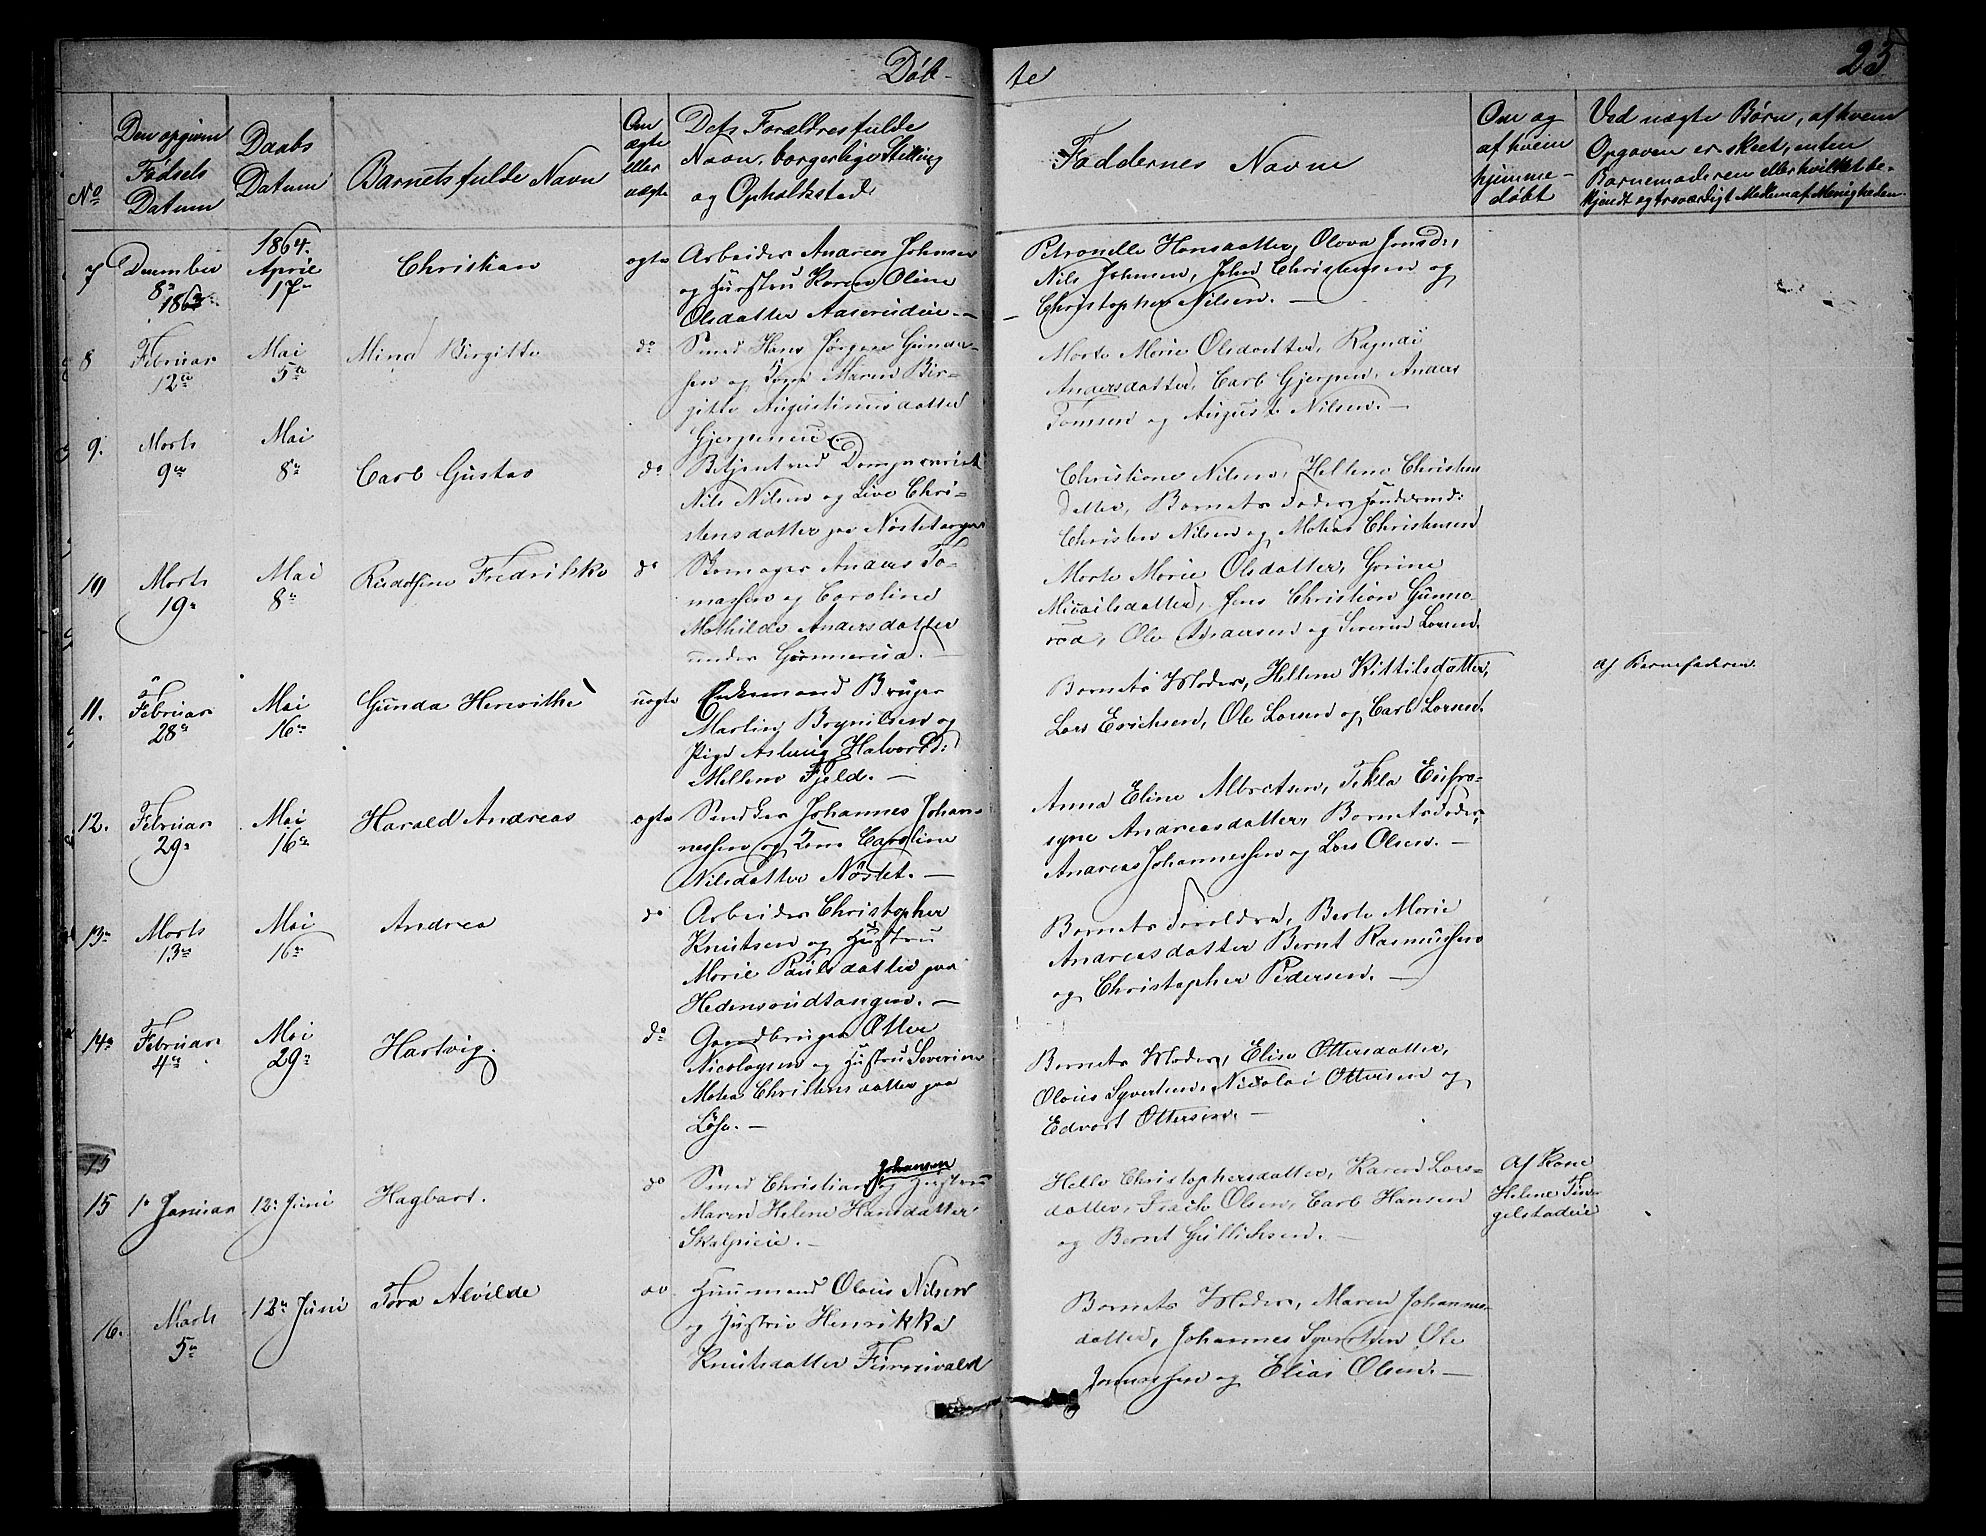 Døb-
te
23
No
Den opgivne
Fødsels
Datum
Daabs
Datum
Barnets fulde Navn
Om
ægte
eller
uægte
Dets Forældres fulde
Navn, borgerlige Stilling
og Opholdsted
Faddernes Navne
Om og
af hvem
hjemme-
døbt
Ved uægte Børn, af hvem
Opgaven er skeet, enten
Barnemoderen eller hvilket be-
kjendt og troværdigt Medlem af Menigheden
7
December
8de
1863
1864
April
17de
Christian
ægte
Arbeider Andreas Johnsen
og Hustru Karen Oline
Olsdatter Aaserudeie. —
Petronelle Hansdatter, Olova Jonsd:,
Nils Johnsen, John Christensen og
Christopher Nilsen. —
8
Februar
12te
Mai
5te
Mina Birgitte
do
Smed Hans Jørgen Gunder-
sen og Kone Maren Bir-
gitte Augustinusdatter
Gjerpeneie.
Marte Marie Olsdatter, Ragndi
Andersdatter, Carl Gjerpen, Anders
Tomsen og August Nilsen. —
9.
Marts
9de
Mai
8de
Carl Gustav
do
Betjent ved
Nils Nilsen og Live Chri-
stensdatter paa Nøstetangen
Christiane Nilsen, Hellene Christens
datter, Barnets Fader,
Christen Nilsen og Matias Christensen
10
Marts
19de
Mai
8de
Rudolfine Fredrikke
do
Skomager Anders To-
massen og Caroline
Mathilde Andersdatter
under Gunnerud.
Marte Marie Olsdatter, Gorine
Micailsdatter, Jens Christian Gunne-
rud, Ole Andersen og Severin Larsen.
11.
Februar
28de
Mai
16de
Gunda Henrithe
uægte
Enkemand Bruger
Martin Brynilsen og
Pige Aslaug Halvorsd:
Mellem Fjeld. —
Barnets Moder, Hellene Kittilsdatter,
Lars Erichsen, Ole Larsen og Carl Larsen.
af Barnefaderen.
12.
Februar
29de
Mai
16de
Harald Andreas
ægte
Snedker Johannes Johan-
nessen og Kone Caroline
Nilsdatter Nøstet. —
Anna Eline Albretsen, Tekla Eufro-
syne Andreasdatter, Barnets Fader,
Andreas Johannessen og Lars Olsen. —
13de
Marts
13de
Mai
16de
Andrea
do
Arbeider Christopher
Knutsen og Hustru
Marie Paulsdatter paa
Hedenstadtangen. —
Barnets Forældre, Berte Marie
Andreasdatter Bernt Rasmussen
og Christopher Pedersen. —
14de
Februar
4de
Mai
29de
Hartvig.
do
Gaardbruger Otter
Nicolaysen og Hustru Severine
Matea Christensdatter paa
Løse. —
Barnets Moder, Elise Ottersdatter,
Olaus Syvertsen, Nicolai Ottersen og
Edvart Ottersen. —
15
15
1ste Januar
12te Juni
Hagbart.
do
Johansen
Smed Christian og Hustru
Maren Helene Hansdatter
Skalpieie. —
Helle Christophersdatter, Karen Lars-
datter, Olsen, Carl Hansen
og Bernt Gullichsen. —
Af Kone
Helene Tin-
gelstadeie
16.
Marts
5te
12te Juni
Tora Alvilde
do
Huusmand Olaus Nilsen
og Hustru Henrikka
Knutsdatter
Barnets Moder, Maren Johannes-
datter, Johannes Syvertsen Ole
Jonassen og Elias Olsen. —